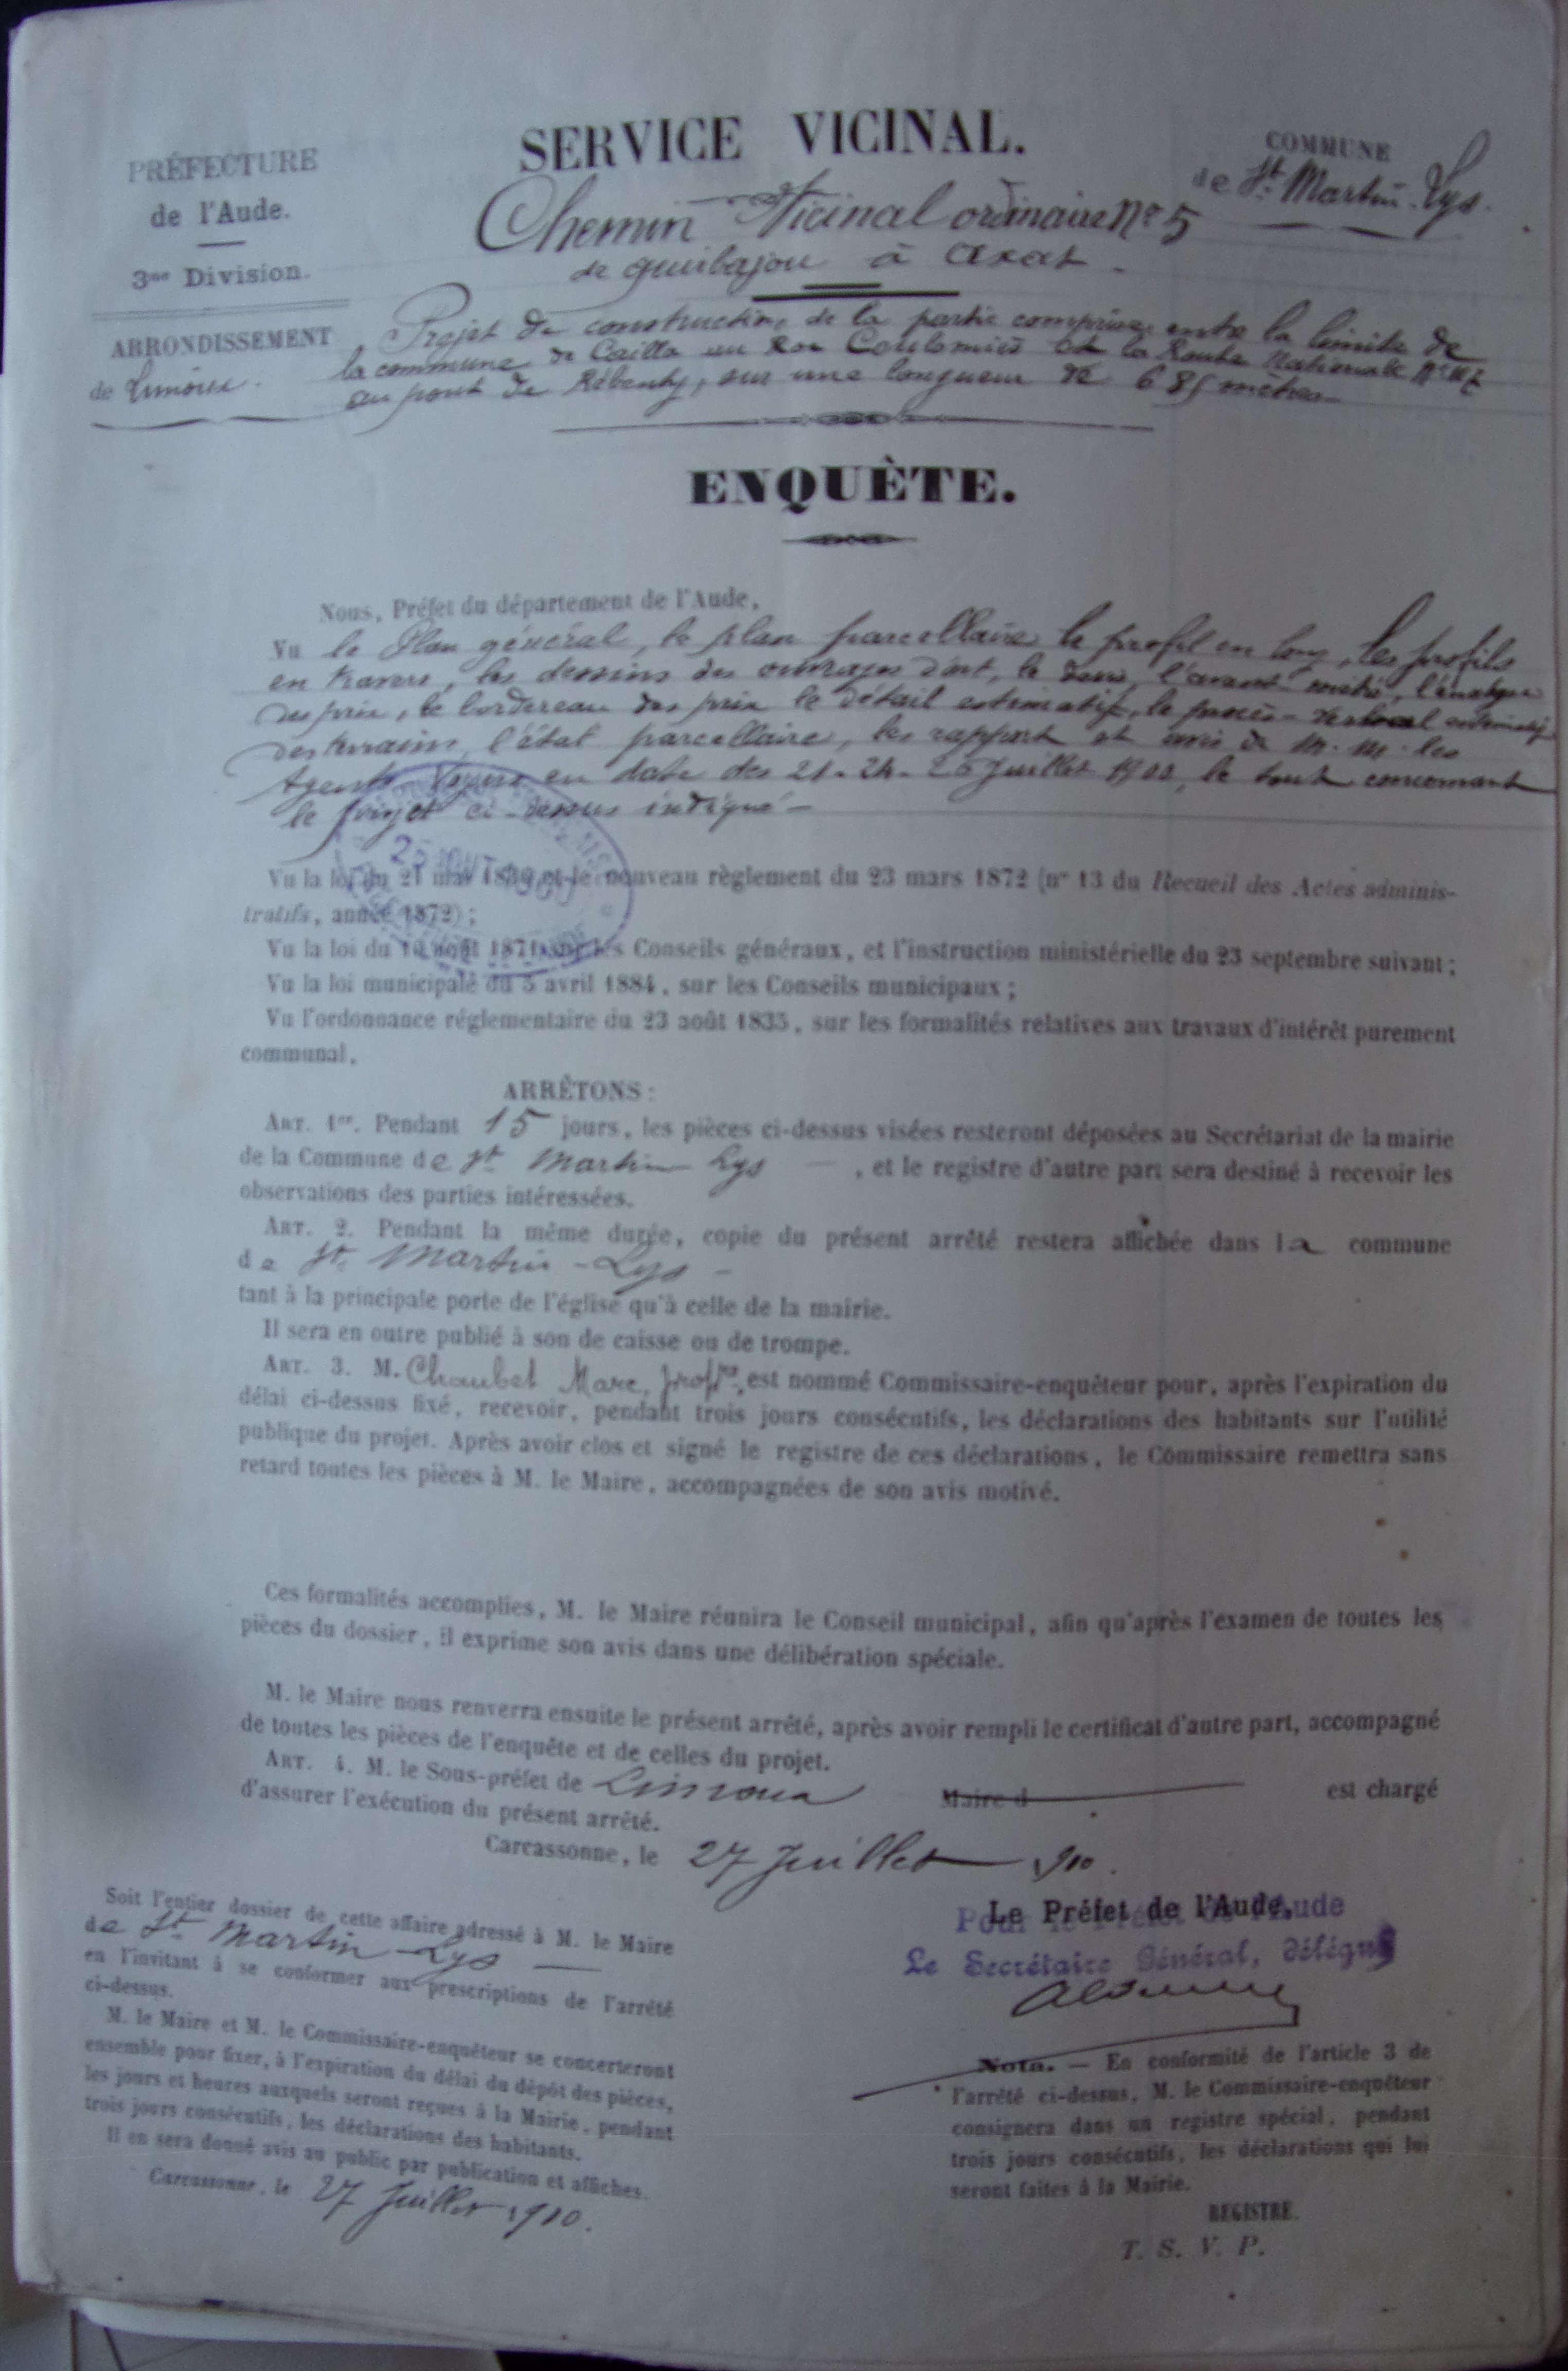 PRÉFECTURE
de l'Aude.
3me Division.
ARRONDISSEMENT
de Limoux.
SERVICE VICINAL.
Chemin Vicinal ordinaire No 5
de quirbajou à Axat.
COMMUNE
de St Martin-Lys.
Projet de construction de la partie comprise entre la limite de
la commune de Cailla au Roc Coulomiès et la Route Nationale No 117
au pont de Rébenty, sur une longueur de 685 mètres
ENQUÈTE.
Nous, Préfet du département de l'Aude,
Vu le Plan général, le plan parcellaire le profil en long, les profils
en travers, les dessins des ouvrages d'art, le devis, l'avant-métré, l'analyse
des prix, le bordereau des prix le détail estimatif, le procès-verbal estimatif
des terrains, l'état parcellaire, les rapport et avis de M. M. les
Agents Voyers en date des 21. 24. 26 Juillet, le tout concernant
le projet ci-dessus indiqué
Vu la loi du 21 mai 1836 et le nouveau règlement du 23 mars 1872 (no 13 du Recueil des Actes adminis-
tratifs, année 1872) ;
Vu la loi du 10 août 1871 sur les Conseils généraux, et l'instruction ministérielle du 23 septembre suivant ;
Vu la loi municipale du 5 avril 1884, sur les Conseils municipaux ;
Vu l'ordonnance réglementaire du 23 août 1835, sur les formalités relatives aux travaux d'intérêt purement
communal,
ARRÊTONS :
ART. 1er. Pendant 15 jours, les pièces ci-dessus visées resteront déposées au Secrétariat de la mairie
de la Commune de St Martin Lys —, et le registre d'autre part sera destiné à recevoir les
observations des parties intéressées.
ART. 2. Pendant la même durée, copie du présent arrêté restera affichée dans la commune
de St Martin-Lys -
tant à la principale porte de l'église qu'à celle de la mairie.
Il sera en outre publié à son de caisse ou de trompe.
ART. 3. M. Chaubet Marc, propre, est nommé Commissaire-enquêteur pour, après l'expiration du
délai ci-dessus fixé, recevoir, pendant trois jours consécutifs, les déclarations des habitants sur l'utilité
publique du projet. Après avoir clos et signé le registre de ces déclarations, le Commissaire remettra sans
retard toutes les pièces à M. le Maire, accompagnées de son avis motivé.
Ces formalités accomplies, M. le Maire réunira le Conseil municipal, afin qu'après l'examen de toutes les
pièces du dossier, il exprime son avis dans une délibération spéciale.
M. le Maire nous renverra ensuite le présent arrêté, après avoir rempli le certificat d'autre part, accompagné
de toutes les pièces de l'enquête et de celles du projet.
ART. 4. M. le Sous-préfet de Limoux Maire d est chargé
d'assurer l'exécution du présent arrêté.
Carcassonne, le 27 Juillet 1910.
Le Préfet de l'Aude,
Pour le Préfet de l'Aude
Le Secrétaire Général, délégué
Soit l'entier dossier de cette affaire adressé à M. le Maire
de St Martin-Lys —
en l'invitant à se conformer aux prescriptions de l'arrêté
ci-dessus.
M. le Maire et M. le Commissaire-enquêteur se concerteront
ensemble pour fixer, à l'expiration du délai du dépôt des pièces,
les jours et heures auxquels seront reçues à la Mairie, pendant
trois jours consécutifs, les déclarations des habitants.
Il en sera donné avis au public par publication et affiches.
Carcassonne, le 27 Juillet 1910.
Nota. — En conformité de l'article 3 de
l'arrêté ci-dessus, M. le Commissaire-enquêteur
consignera dans un registre spécial, pendant
trois jours consécutifs, les déclarations qui lui
seront faites à la Mairie.
REGISTRE.
T. S. V. P.